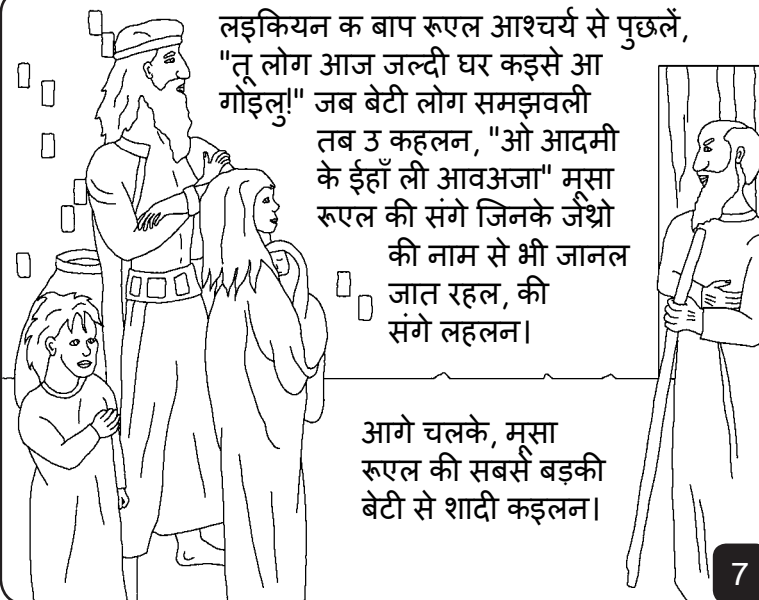 लइकियन क बाप रूएल आश्चर्य से पुछलें,
"तू लोग आज जल्दी घर कइसे आ
गोइलु!" जब बेटी लोग समझवली
तब उ कहलन, "ओ आदमी
के ईहाँ ली आवअजा" मूसा
रूएल की संगे जिनके जेथ्रो
की नाम से भी जानल
जात रहल, की
संगे लहलन।
आगे चलके, मूसा
रूएल की सबसे बड़की
बेटी से शादी कइलन।
7